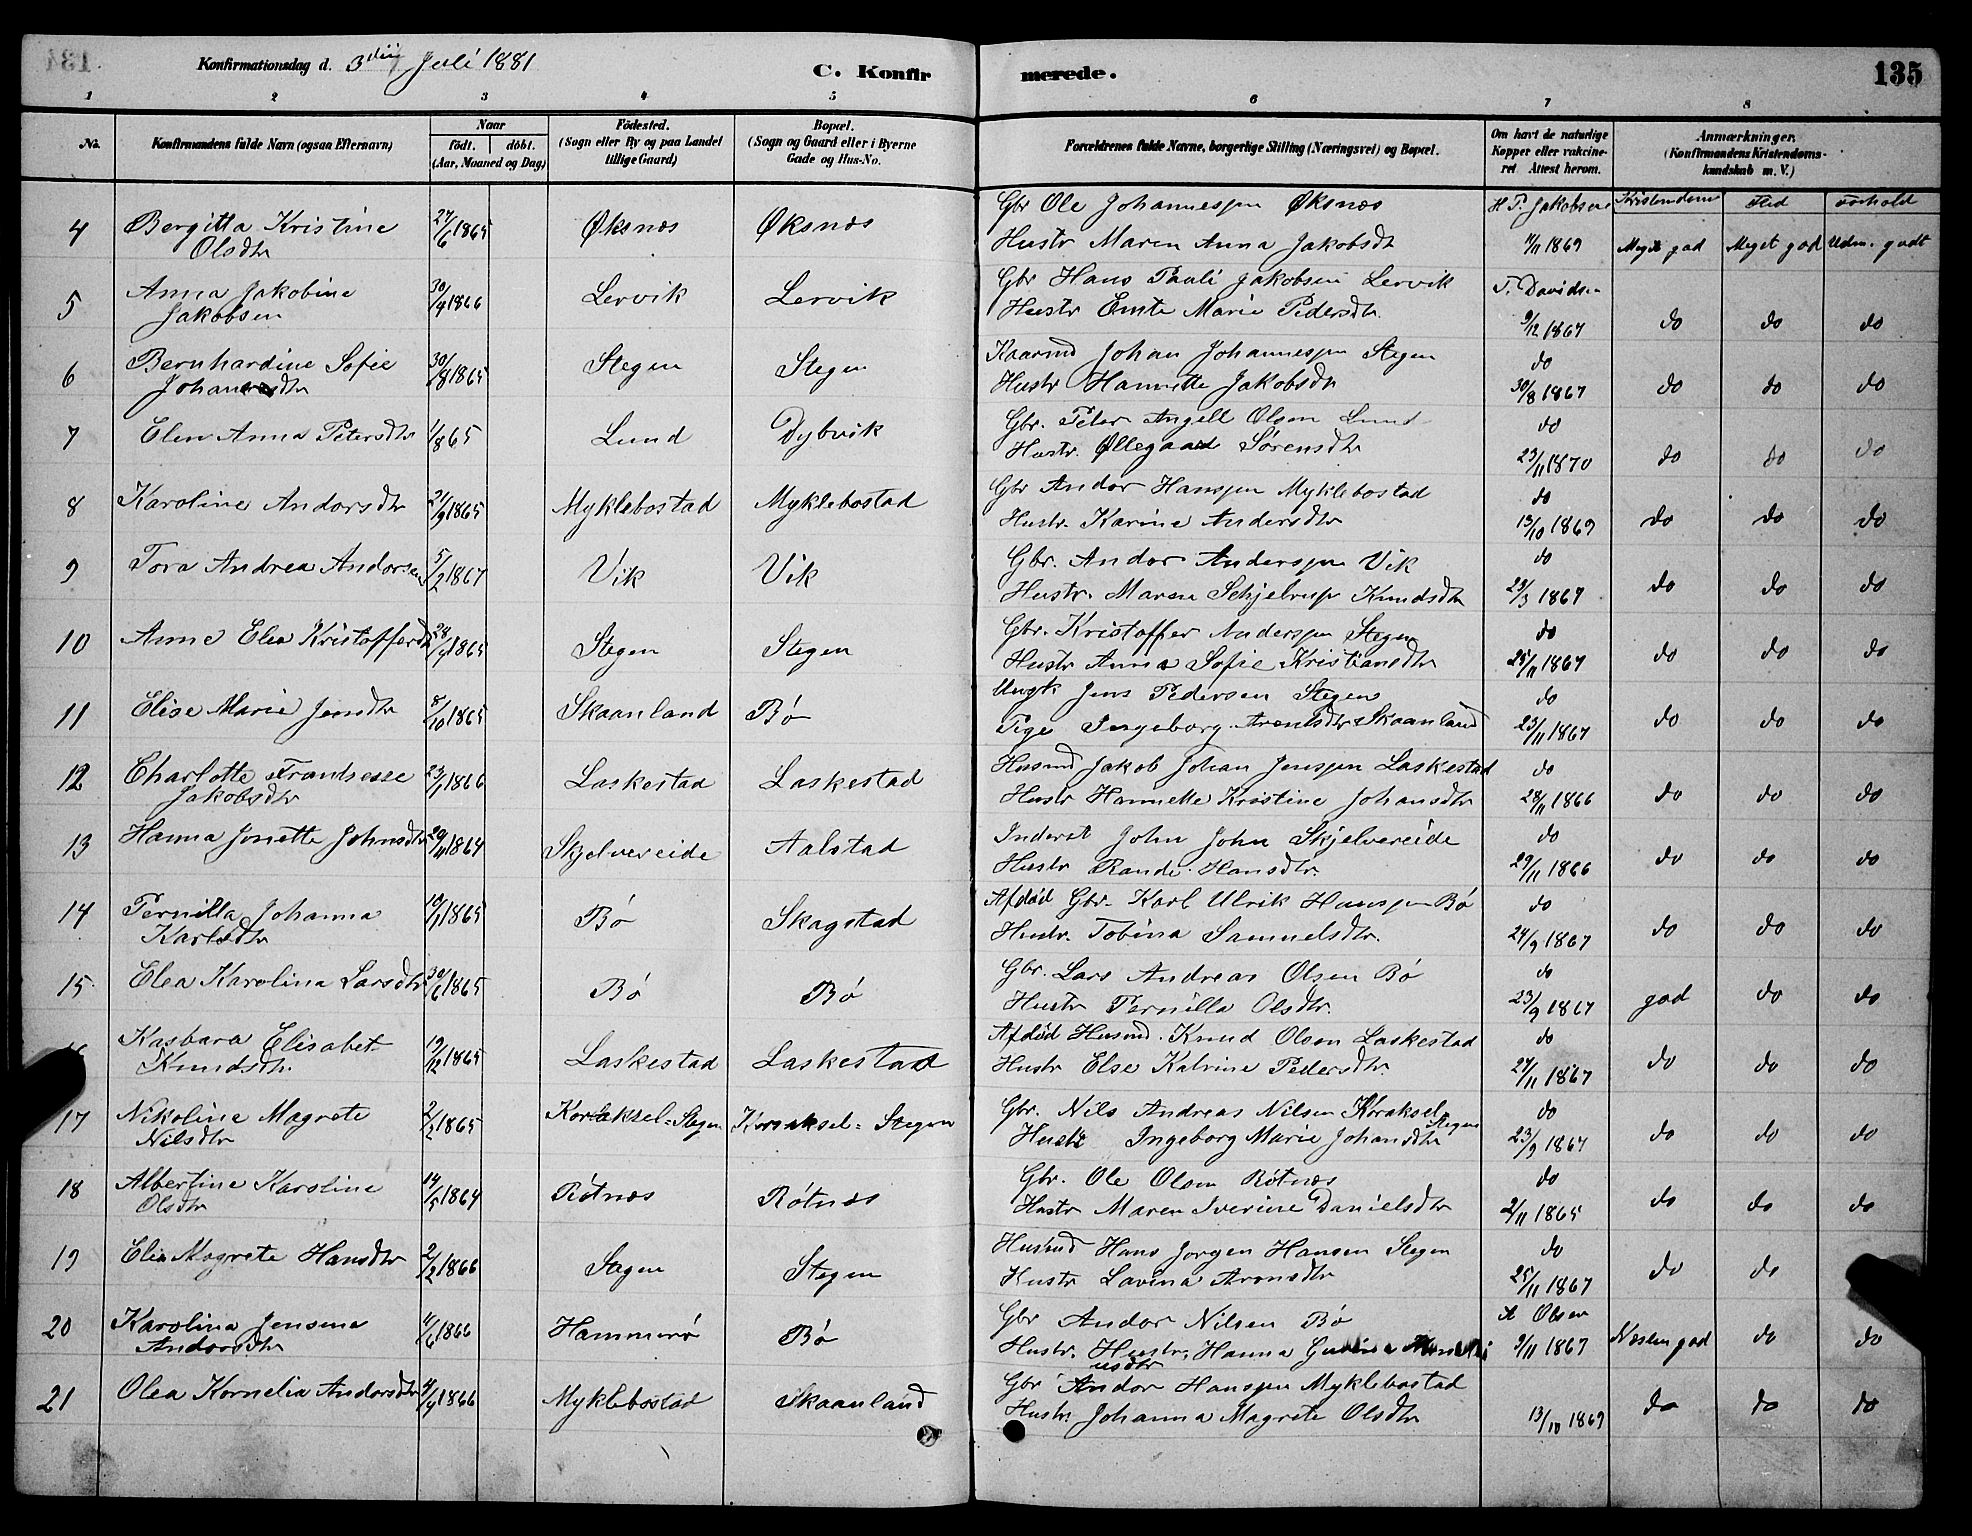 Konfirmationsdag d. 3die Juli 1881
C. Konfirmerede.
135
1 2 3 4 5 6 7 8
No.
Konfirmandens fulde Navn (ogsaa Efternavn)
Naar
født. døbt.
(Aar, Maaned og Dag)
Fødested.
(Sogn eller By og paa Landet
tillige Gaard)
Bopæl.
(Sogn og Gaard eller i Byerne
Gade og Hus-No.
Forældrenes fulde Navne, borgerlige Stilling (Næringsvei) og Bopæl.
Om havt de naturlige
Kopper eller vakcine-
ret Attest herom.
Anmærkninger.
(Konfirmandens Kristendoms-
kundskab m. V.)
Kristendom Flid Forhold
4 Bergitta Kristine Olsdtr 27/6 1865 Øksnæs Øksnæs Gbr Ole Johannessen Øksnæs H P. Jakobsen
Hustr Maren Anna Jakobsdt 4/11 1869 Meget god Meget god Udm. godt
5 Anna Jakobine Jakobsen 30/4 1866 Lervik Lervik Gbr Hans Pauli Jakobsen Lervik T. Davidsen
Hustr Emte Marie Pedersdtr. 9/12 1867 do do do
6 Bernhardine Sofie Johansdtr 30/8 1865 Stegen Stegen Kaarmd Johan Johannessen Stegen do
Hustr Hannette Jakobsdtr 30/8 1867 do do do
7 Elen Anna Petersdtr 1/8 65 Lund Dybvik Gbr. Peter Angell Olsen Lund do
Hustr. Øllegaard Sørensdtr 23/11 1870 do do do
8 Karoline Andorsdtr 21/9 1865 Myklebostad Myklebostad Gbr Andor Hanssen Myklebostad do
Hustr. Karine Andersdtr 13/10 1869 do do do
9 Tora Andrea Andorsen 5/2 1867 Vik Vik Gbr. Andor Anderssen Vik do
Hustr. Maren Schjelrup Knudsdtr 29/3 1867 do do do
10 Anne Elea Kristoffersdtr 1865 Stegen Stegen Gbr. Kristoffer Anderssen Stegen do
Hustr Anna Sofie Kristiansdtr 25/11 1867 do do do
11 Elise Marie Jensdtr 8/10 1865 Skaanland Bø Ungk Jens Pedersen Stegen do
Pige Ingeborg Arentsdtr Skaanland 23/11 1867 do do do
12 Charlotte Frantsesse Jakobsdtr 23/1 1866 Laskestad Laskestad Husmd Jakob Johan Jenssen Laskestad do
Hustr Hannette Kristine Johansdtr 28/11 1866 do do do
13 Hanna Jonette Johnsdtr 20/11 1864 Skjelvereide Aalstad Inderst John John Skjelvereide do
Hustr Rande Hansdtr. 29/11 1866 do do do
14 Pernilla Johanna Karlsdtr 10/1 1865 Bø Skagstad Afdød Gbr. Karl Ulrik Hanssen Bø do
Hustr. Tobina Samuelsdtr. 24/9 1867 do do do
15 Elea Karolina Larsdtr 30/6 1865 Bø Bø Gbr. Lars Andreas Olsen Bø do
Hustr Pernilla Olsdtr. 23/9 1867 god do do
Kasbara Elisabet Knudsdtr. 19/12 1865 Laskestad Laskestad Afdød Husmd. Knud Olsen Laskestad do
Hustr Else Katrine Pedersdtr. 27/11 1867 do do do
17 Nikolina Magrete Nilsdtr 2/2 1865 Korsaksel-Stegen Korsaksel-Stegen Gbr. Nils Andreas Nilsen Stegen do
Hustr Ingeborg Marie Johansdtr 23/9 1867 do do do
18 Albertine Karoline Olsdtr 14/5 1864 Røtnæs Røtnæs Gbr. Ole Olsen Røtnæs do
Hustr Maren Iverine Danielsdtr 2/11 1865 do do do
19 Elea Magrete Hansdtr 2/2 1866 Stegen Stegen Husmd Hans Jørgen Hansen Stegen do
Hustr Lavina Aronsdtr 25/11 1867 do do
20 Karolina Jensine Andorsdtr 4/6 1866 Hammerø Bø Gbr Andor Nilsen Bø A Olsen
Hustr. Hustr. Hanna 9/11 1867 Næsten god do do
usdtr
21 Olea Kornelia Andorsdtr 4/4 1866 Myklebostad Skaanland Gbr Andor Hanssen Myklebostad
Hustr. Johanna Magrete Olsdtr 13/10 1869 do do do